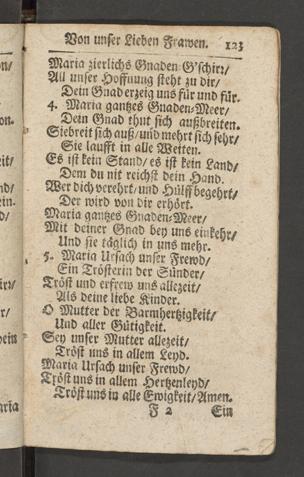 Von unser Lieben Frawen. 123
Maria zierlichs Gnaden G'schir:/
All unser Hoffnung steht zu dir/
Dein Gnad erzeig uns für und für.
4. Maria gantzes Gnaden-Meer/
Dein Gnad thut sich außbreiten.
Sie breit sich auß/ und mehrt sich sehr/
Sie laufft in alle Weiten.
Es ist kein Stand/ es ist kein Land/
Dem du nit reichst dein Hand.
Wer dich verehrt/ und Hülff begehrt/
Der wird von dir erhört.
Maria gantzes Gnaden-Meer/
Mit deiner Gnad bey uns einkehr/
Und sie täglich in uns mehr.
5. Maria Ursach unser Frewd/
Ein Trösterin der Sünder/
Tröst und erfrew uns allezeit/
Als deine liebe Kinder.
O Mutter der Barmhertzigkeit/
Und aller Gütigkeit.
Sey unser Mutter allezeit/
Tröst uns in allem Leyd.
Maria Ursach unser Frewd/
Tröst uns in allem Hertzenleyd/
Tröst uns in alle Ewigkeit/ Amen.
F 2 Ein